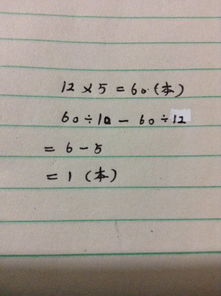 12×5=60(本)
60÷10-60÷12
=6-5
=1(本)